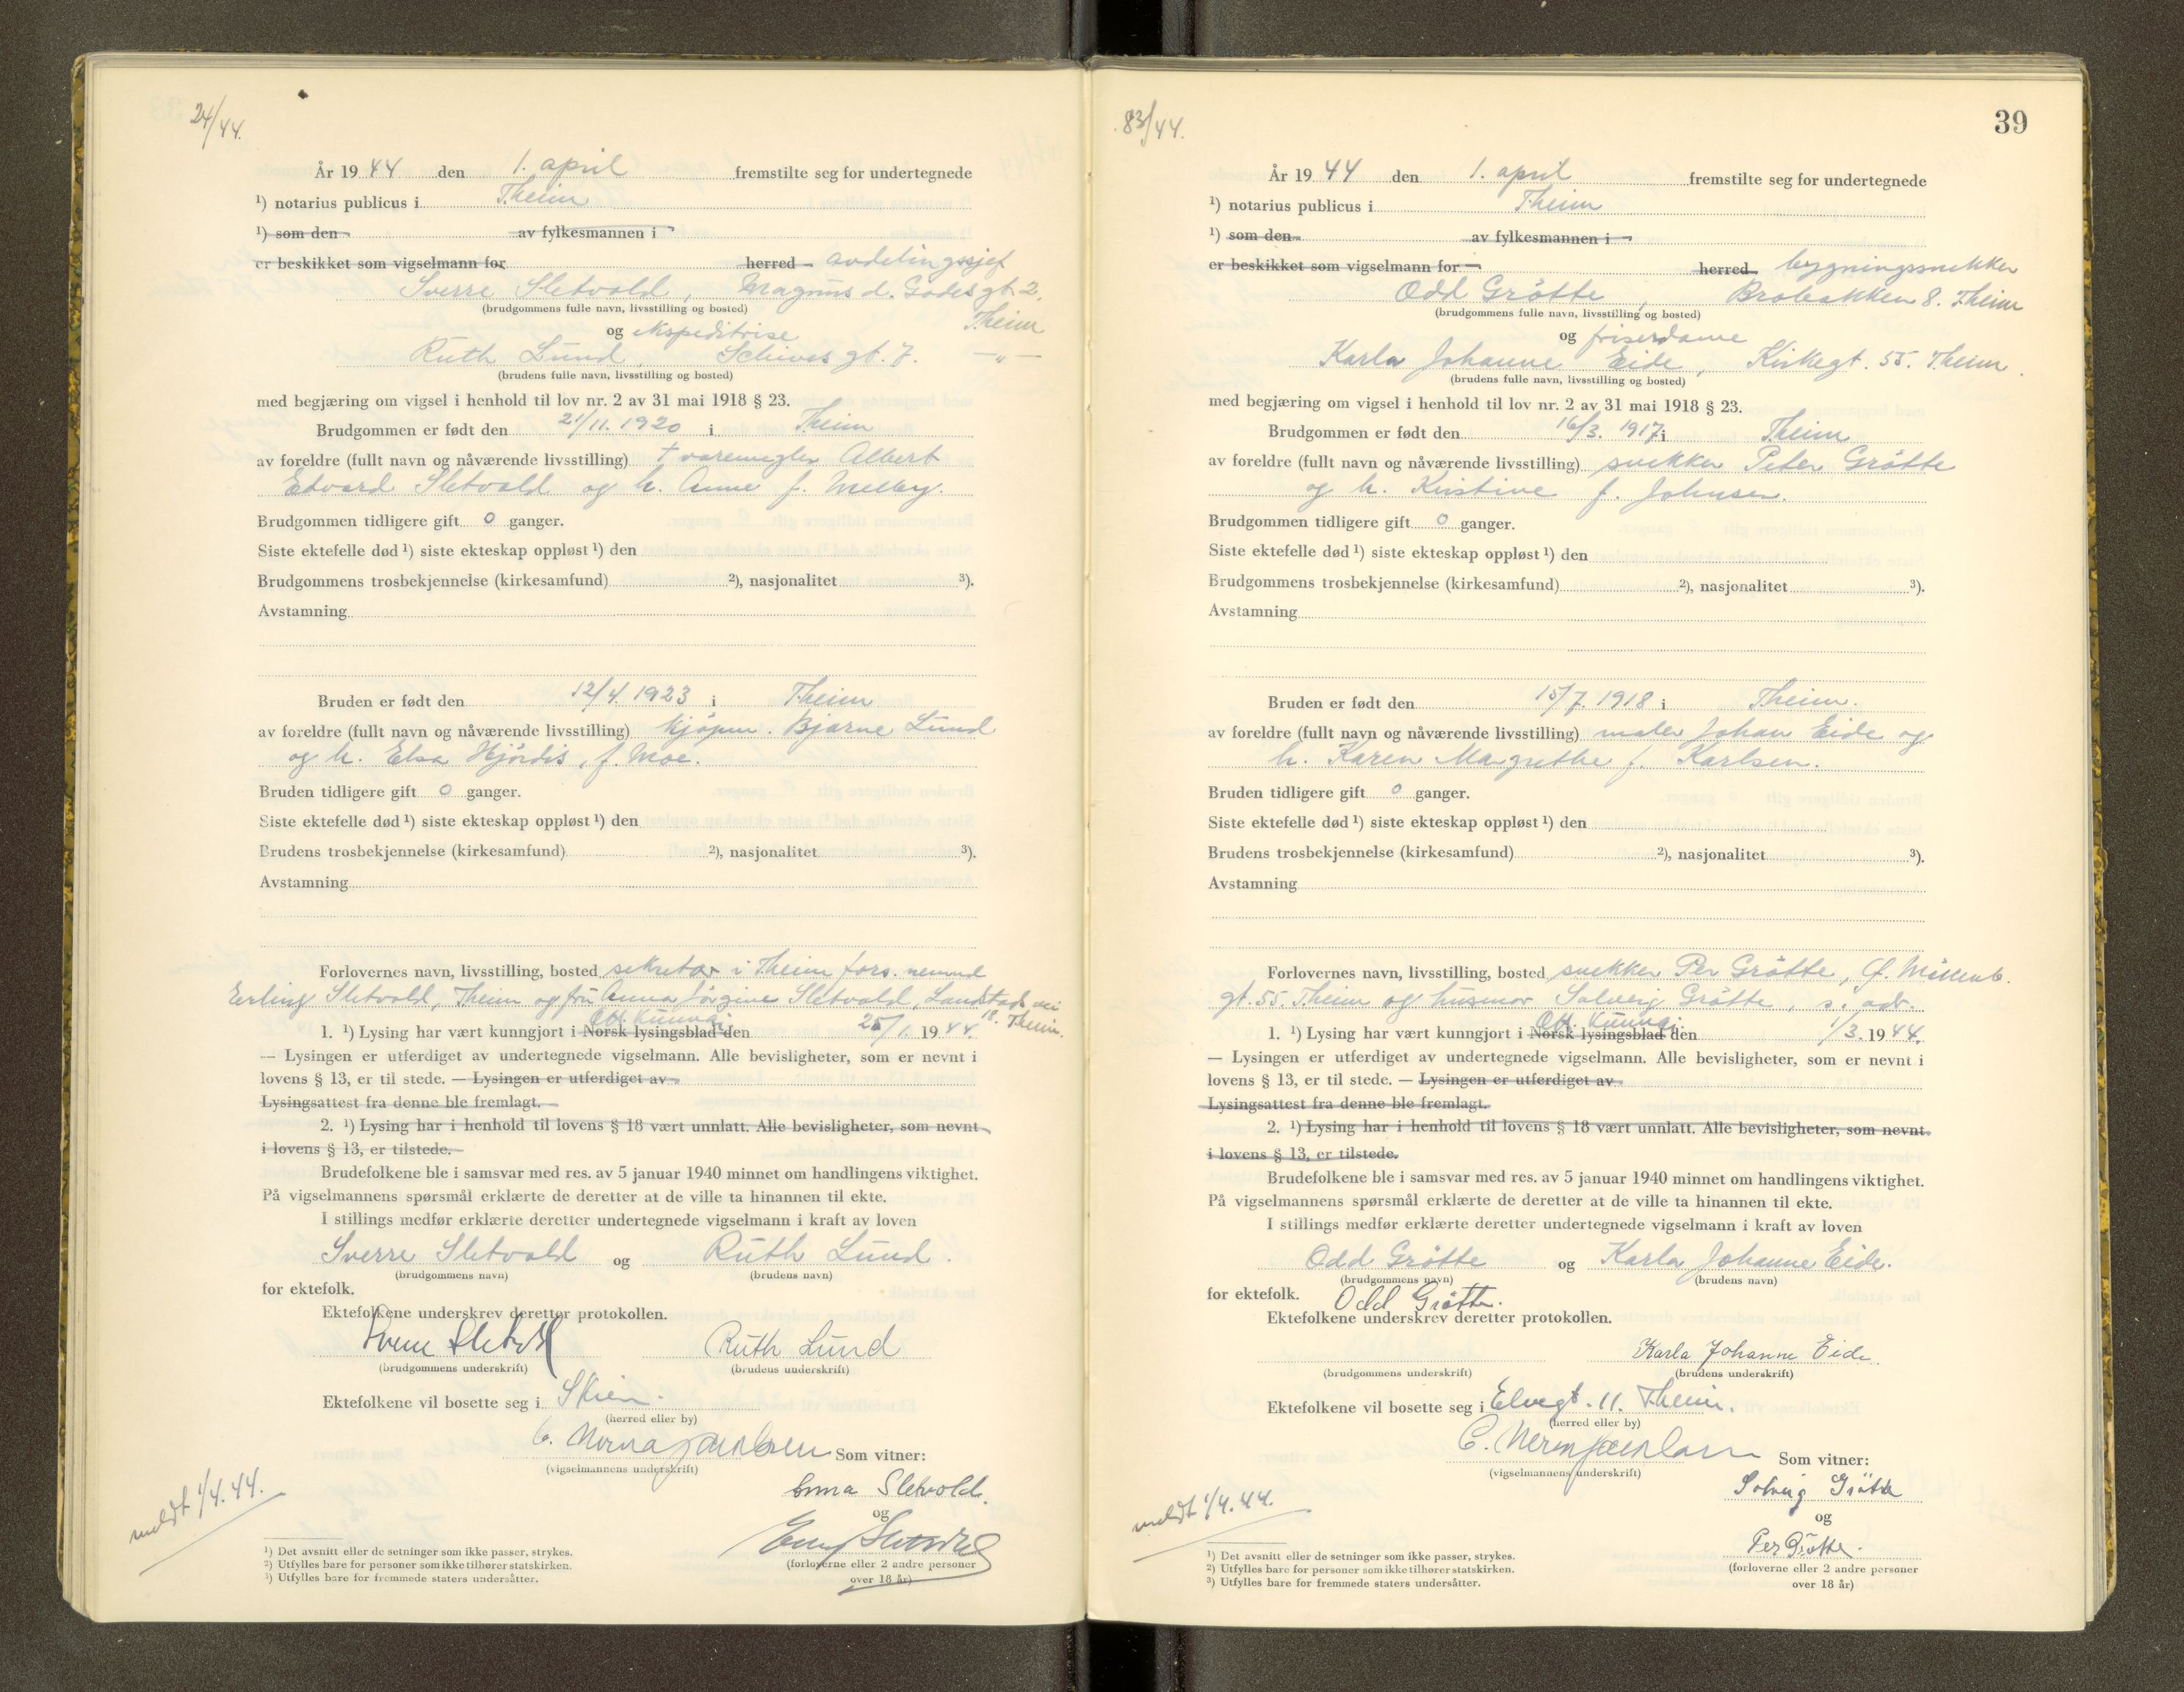 24/44.
År 1944 den 1. april fremstilte seg for undertegnede
¹) notarius publicus i Theim
¹) som den av fylkesmannen i
er beskikket som vigselmann for herred avdelingssjef
Sverre Sletvold, Magnus d. Godes gt. 2,
(brudgommens fulle navn, livsstilling og bosted) Theim
og ekspeditrise
Ruth Lund, Schives gt. 7. —"—
(brudens fulle navn, livsstilling og bosted)
med begjæring om vigsel i henhold til lov nr. 2 av 31 mai 1918 § 23.
Brudgommen er født den 21/11. 1920 i Theim
av foreldre (fullt navn og nåværende livsstilling) † varemegler Albert
Edvard Sletvold og h. Anne f. Melby.
Brudgommen tidligere gift 0 ganger.
Siste ektefelle død ¹) siste ekteskap oppløst ¹) den
Brudgommens trosbekjennelse (kirkesamfund) ²), nasjonalitet ³).
Avstamning
Bruden er født den 12/4. 1923 i Theim
av foreldre (fullt navn og nåværende livsstilling) kjøpm. Bjarne Lund
og h. Elsa Hjördis, f. Moe.
Bruden tidligere gift 0 ganger.
Siste ektefelle død ¹) siste ekteskap oppløst ¹) den
Brudens trosbekjennelse (kirkesamfund) ²), nasjonalitet ³).
Avstamning
Forlovernes navn, livsstilling, bosted sekretær i Theim fors. nemnd
Erling Sletvold, Theim og fru Anna Jörgine Sletvold, Landstads vei
18. Theim.
Off. kunngj.
1. ¹) Lysing har vært kunngjort i Norsk lysingsblad den 25/1. 1944.
— Lysingen er utferdiget av undertegnede vigselmann. Alle bevisligheter, som er nevnt i
lovens § 13, er til stede. — Lysingen er utferdiget av
Lysingsattest fra denne ble fremlagt.
2. ¹) Lysing har i henhold til lovens § 18 vært unnlatt. Alle bevisligheter, som nevnt
i lovens § 13, er tilstede.
Brudefolkene ble i samsvar med res. av 5 januar 1940 minnet om handlingens viktighet.
På vigselmannens spørsmål erklærte de deretter at de ville ta hinannen til ekte.
I stillings medfør erklærte deretter undertegnede vigselmann i kraft av loven
Sverre Sletvold og Ruth Lund.
(brudgommens navn) (brudens navn)
for ektefolk.
Ektefolkene underskrev deretter protokollen.
Sverre Sletvold Ruth Lund
(brudgommens underskrift) (brudens underskrift)
Ektefolkene vil bosette seg i Skien.
(herred eller by)
Som vitner:
(vigselmannens underskrift)
Anna Sletvold.
og
meldt 1/4. 44.
(forloverne eller 2 andre personer
over 18 år)
¹) Det avsnitt eller de setninger som ikke passer, strykes.
²) Utfylles bare for personer som ikke tilhører statskirken.
³) Utfylles bare for fremmede staters undersåtter.
39
83/44.
År 1944 den 1. april fremstilte seg for undertegnede
¹) notarius publicus i Theim
¹) som den av fylkesmannen i
er beskikket som vigselmann for herred bygningssnekker
Odd Grötte, Brobakken 8. Theim
(brudgommens fulle navn, livsstilling og bosted)
og friserdame
Karla Johanne Eide, Kirkegt. 55. Theim.
(brudens fulle navn, livsstilling og bosted)
med begjæring om vigsel i henhold til lov nr. 2 av 31 mai 1918 § 23.
Brudgommen er født den 16/3. 1917 i Theim
av foreldre (fullt navn og nåværende livsstilling) snekker Peter Grötte
og h. Kristine f. Johnsen.
Brudgommen tidligere gift 0 ganger.
Siste ektefelle død ¹) siste ekteskap oppløst ¹) den
Brudgommens trosbekjennelse (kirkesamfund) ²), nasjonalitet ³).
Avstamning
Bruden er født den 15/7. 1918 i Theim.
av foreldre (fullt navn og nåværende livsstilling) maler Johan Eide og
h. Karen Margrethe f. Karlsen.
Bruden tidligere gift 0 ganger.
Siste ektefelle død ¹) siste ekteskap oppløst ¹) den
Brudens trosbekjennelse (kirkesamfund) ²), nasjonalitet ³).
Avstamning
Forlovernes navn, livsstilling, bosted snekker Per Grötte, Ö. Möllenb.
gt. 55. Theim og husmor Solveig Grötte, s. adr.
Off. kunngj.
1. ¹) Lysing har vært kunngjort i Norsk lysingsblad den 1/3. 1944.
— Lysingen er utferdiget av undertegnede vigselmann. Alle bevisligheter, som er nevnt i
lovens § 13, er til stede. — Lysingen er utferdiget av
Lysingsattest fra denne ble fremlagt.
2. ¹) Lysing har i henhold til lovens § 18 vært unnlatt. Alle bevisligheter, som nevnt
i lovens § 13, er tilstede.
Brudefolkene ble i samsvar med res. av 5 januar 1940 minnet om handlingens viktighet.
På vigselmannens spørsmål erklærte de deretter at de ville ta hinannen til ekte.
I stillings medfør erklærte deretter undertegnede vigselmann i kraft av loven
Odd Grötte og Karla Johanne Eide.
(brudgommens navn) (brudens navn)
for ektefolk. Odd Grötte.
Ektefolkene underskrev deretter protokollen.
Karla Johanne Eide
(brudgommens underskrift) (brudens underskrift)
Ektefolkene vil bosette seg i Elvegt. 11. Theim.
(herred eller by)
Som vitner:
(vigselmannens underskrift)
Solveig Grötte
og
Per Grötte.
meldt 1/4. 44.
(forloverne eller 2 andre personer
over 18 år)
¹) Det avsnitt eller de setninger som ikke passer, strykes.
²) Utfylles bare for personer som ikke tilhører statskirken.
³) Utfylles bare for fremmede staters undersåtter.